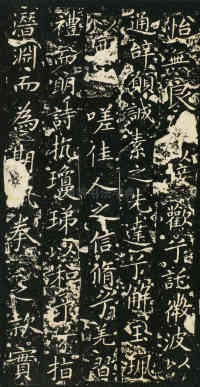 怡無良接歡兮託微波以
通辭願誠素之先達兮解玉珮
嗟佳人之信脩兮羌習
禮而明詩抗瓊珶以和予兮指
潛淵而為期拳之款實